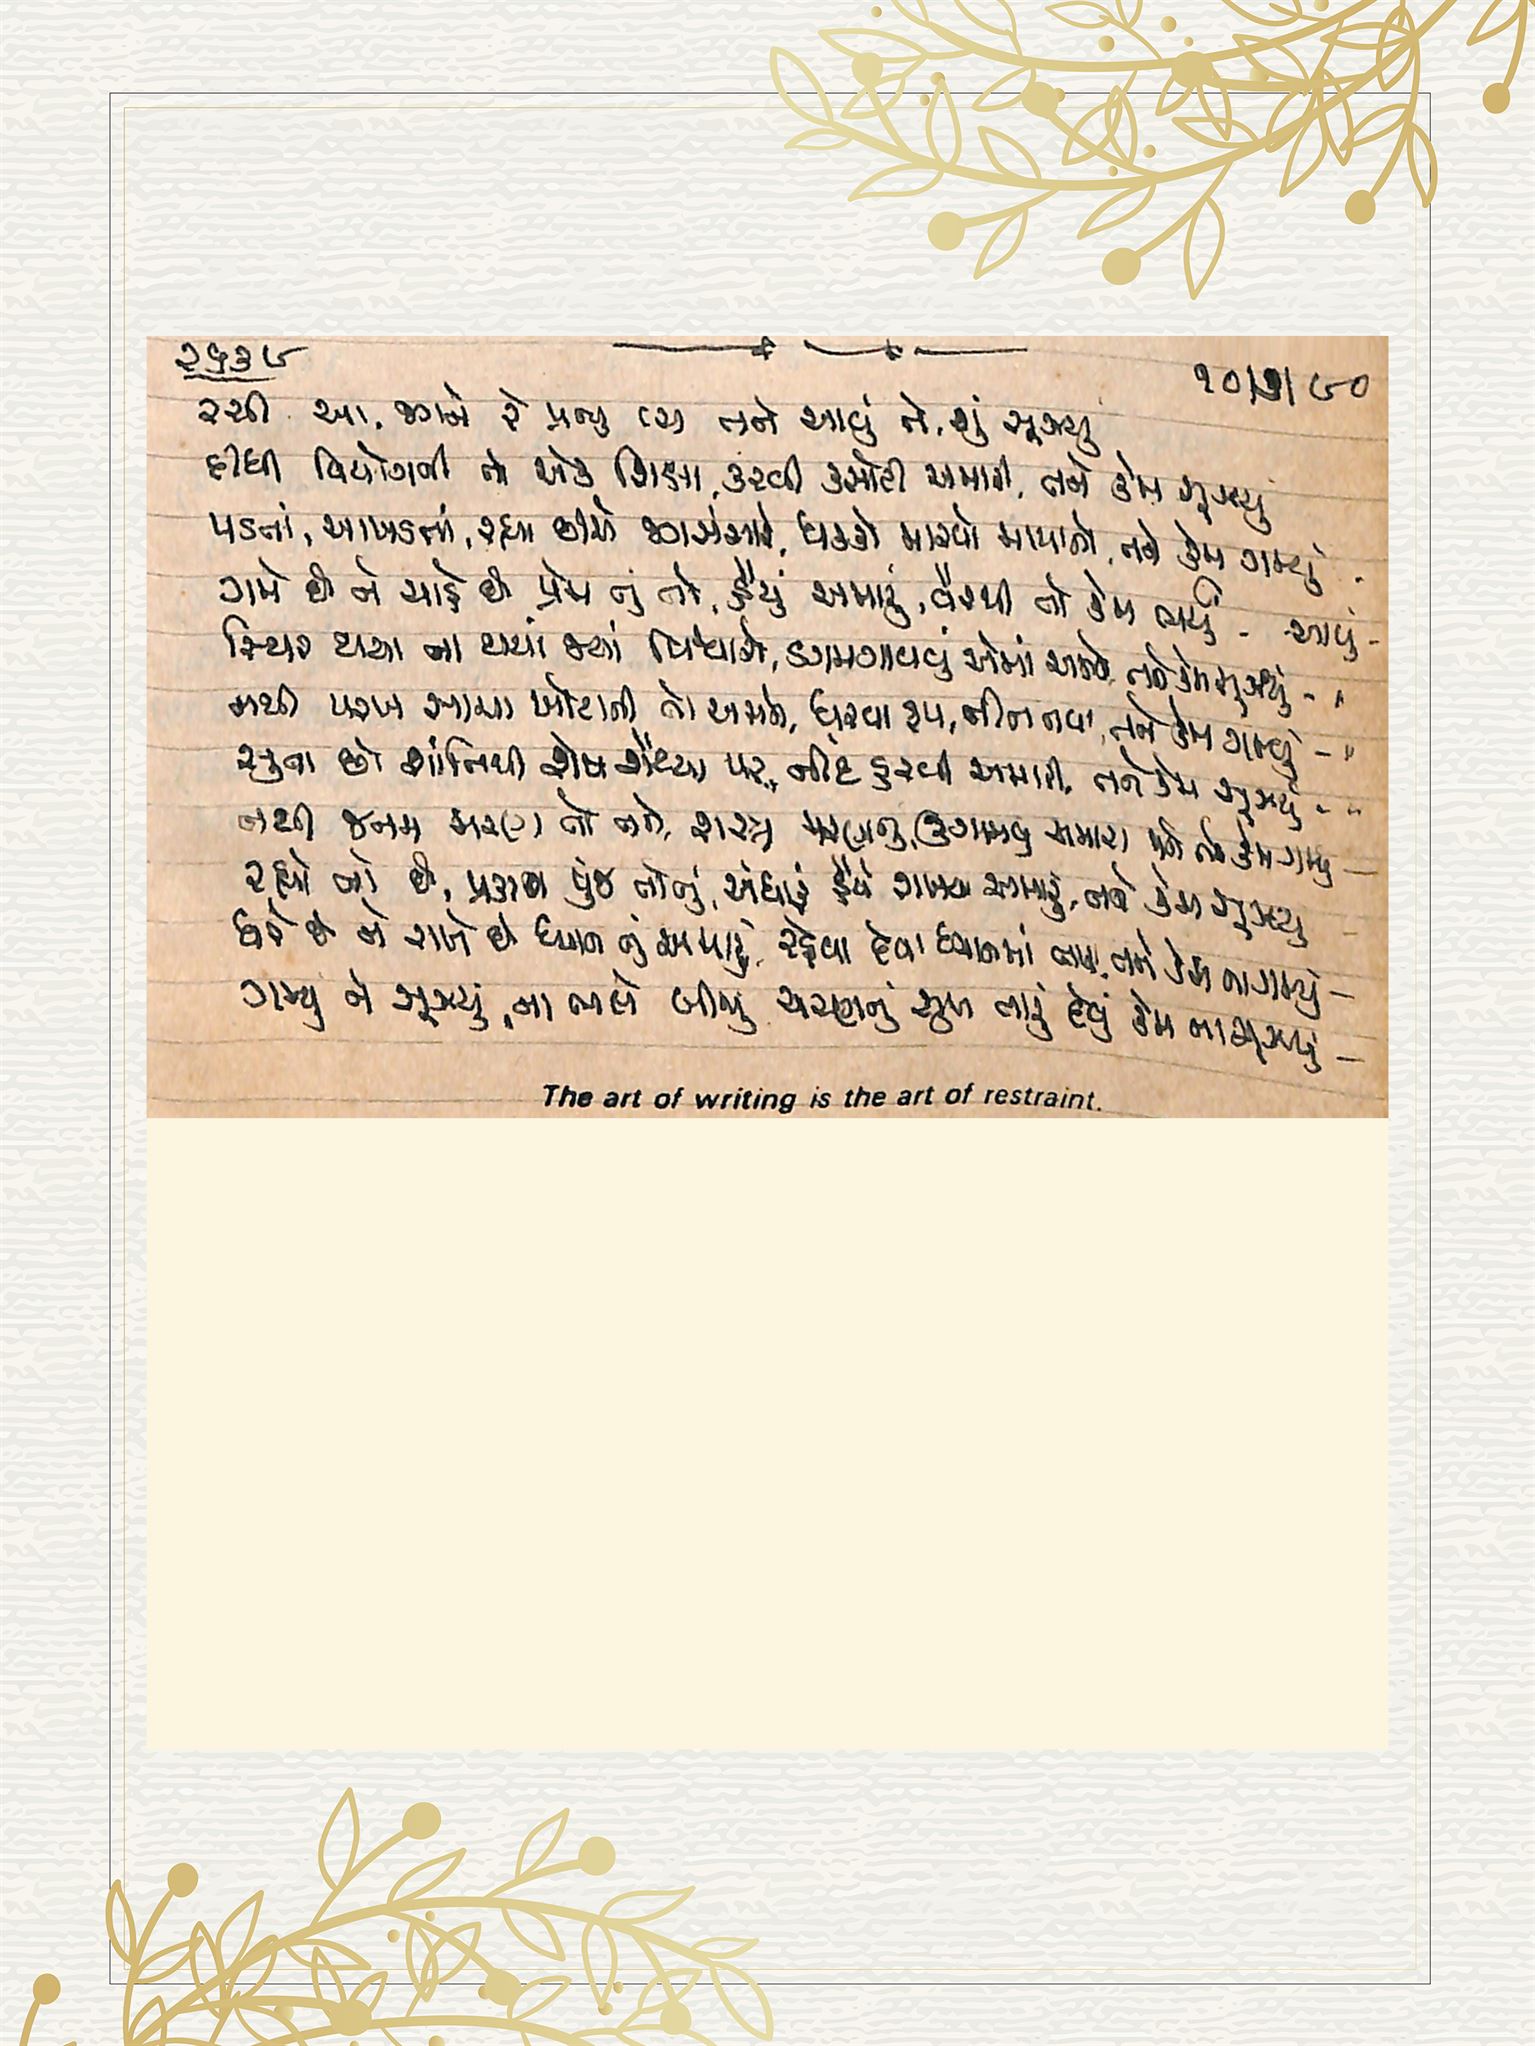 ૨૫૩૯
૧૦/૭/૯૦
રચી આ જગને રે પ્રભુ તને આવું તે, શું સૂઝ્યું
દીધી વિયોગની તો એક શિક્ષા, કરવી કસોટી અમારી, તને કેમ સૂઝ્યું
પડતાં, આખડતાં, રહ્યા છીએ જગસંસારે, ધક્કો મારવો માયાનો, તને કેમ ગમ્યું
ગમે છે ને ચાહે છે પ્રેમ નું તો, હૈયું અમારું, વૈરથી તો કેમ ભર્યું - આવું -
સ્થિર થયા ના થયાં જ્યાં વિચારો, ડગમગાવવું એમાં અમને, તને કેમ સૂઝ્યું - "
નથી પરખ સાચા ખોટાની તો અમને, ધરવા રૂપ, નીત નવા, તને કેમ ગમ્યું - "
સુતા છો શાંતિથી શેષ શૈય્યા પર, નીંદ હરવી અમારી, તને કેમ સૂઝ્યું - "
નથી જનમ મરણ તો તને, શસ્ત્ર મરણનું, ઉગામવુ અમારા પર તને કેમ ગમ્યુ -
રહ્યો તો છે, પ્રકાશ પુંજ તો તું, અંધારું હૈયે રાખવા અમારું, તને કેમ સૂઝ્યુ -
ધરે છે ને રાખે છે ધ્યાન તું અમારું, રહેવા દેવા ધ્યાનમાં તારા, તને કેમ ના ગમ્યું -
ગમ્યુ ને સૂઝ્યું, ના ભલે બીજુ ચરણનું સુખ તારું દેવું કેમ ના સૂઝ્યું -
The art of writing is the art of restraint.